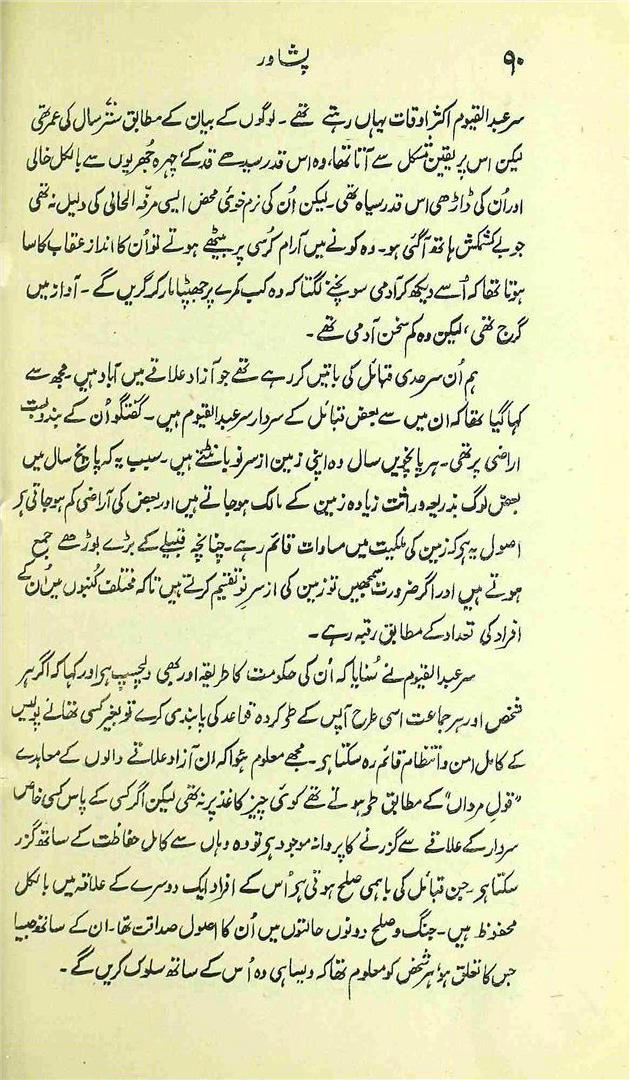 ۹۰
پشاور
سر عبدالقیوم اکثر اوقات یہاں رہتے تھے۔ لوگوں کے بیان کے مطابق ستّر سال کی عمر تھی
لیکن اس پر یقین مشکل سے آتا تھا، وہ اس قدر سیدھے قد کے، چہرہ جھریوں سے بالکل خالی
اور اُن کی ڈاڑھی اس قدر سیاہ تھی۔ لیکن اُن کی نرم خوئی محض ایسی مرفّہ الحالی کی دلیل نہ تھی
جو بے کشمکش ہاتھ آگئی ہو۔ وہ کونے میں آرام کُرسی پر بیٹھے ہوتے تو اُن کا انداز عقاب کا سا
ہوتا تھا کہ اُسے دیکھ کر آدمی سوچنے لگتا کہ وہ کب کمرے پر جھپٹا مار کر گریں گے۔ آواز میں
گرج تھی، لیکن وہ کم سخن آدمی تھے۔
ہم اُن سرحدی قبائل کی باتیں کر رہے تھے جو آزاد علاقے میں آباد ہیں۔ مجھ سے
کہا گیا تھا کہ ان میں سے بعض قبائل کے سردار سر عبدالقیوم ہیں۔ گفتگو اُن کے بندوبست
اراضی پر تھی۔ ہر پانچویں سال وہ اپنی زمین از سر نو بانٹتے ہیں۔ سبب یہ کہ پانچ سال میں
بعض لوگ بذریعہ وراثت زیادہ زمین کے مالک ہو جاتے ہیں اور بعض کی آراضی کم ہو جاتی ہی
اصول یہ ہی کہ زمین کی ملکیت میں مساوات قائم رہے۔ چنانچہ قبیلے کے بڑے بوڑھے جمع
ہوتے ہیں اور اگر ضرورت سمجھیں تو زمین کی از سرِ نو تقسیم کرتے ہیں تاکہ مختلف کُنبوں میں اُن کے
افراد کی تعداد کے مطابق رقبہ رہے۔
سر عبدالقیوم نے سُنایا کہ اُن کی حکومت کا طریقہ اور بھی دلچسپ ہی اور کہا کہ اگر ہر
شخص اور ہر جماعت اسی طرح آپس کے طر کردہ قواعد کی پابندی کرے تو بغیر کسی تھانے پولیس
کے کامل امن و انتظام قائم رہ سکتا ہی۔ مجھے معلوم ہوا کہ ان آزاد علاقے والوں کے معاہدے
”قولِ مرداں“ کے مطابق طر ہوتے تھے کوئی چیز کاغذ پر نہ تھی لیکن اگر کسی کے پاس کسی خاص
سردار کے علاقے سے گزرنے کا پروانہ موجود ہی تو وہ وہاں سے کامل حفاظت کے ساتھ گزر
سکتا ہی۔ جن قبائل کی باہمی صلح ہوئی ہی اُس کے افراد ایک دوسرے کے علاقہ میں بالکل
محفوظ ہیں۔ جنگ و صلح دونوں حالتوں میں اُن کا اصول صداقت تھا۔ ان کے ساتھ جیسا
جس کا تعلق ہو، ہر شخص کو معلوم تھا کہ ویسا ہی وہ اُس کے ساتھ سلوک کریں گے۔